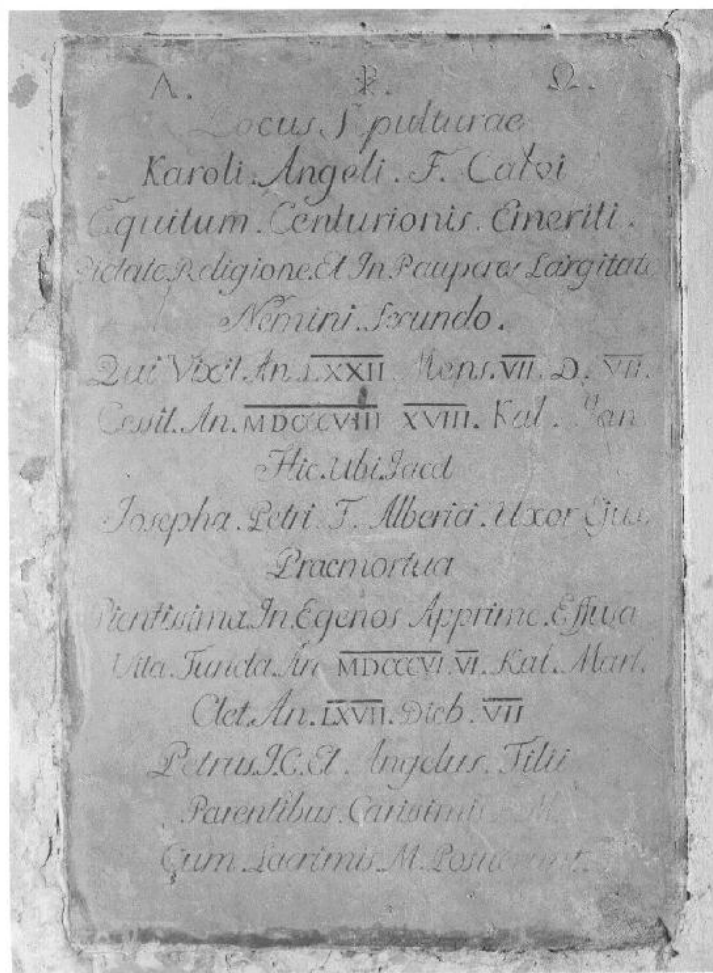 Α. ☧. Ω.
Locus Sepulturae
Karoli. Angeli. F. Calvi
Equitum. Centurionis. Emeriti.
Pietate. Religione. Et In Pauperes Largitate
Nemini. Secundo.
Qui Vixit. An. LXXII. Mens. VII. D. VII.
Cessit. An. MDCCCVIII XVIII. Kal. Jan
Hic. Ubi. Jacet
Josepha. Petri. F. Alberici. Uxor Ejus
Praemortua
Pientissima. In. Egenos Apprime. Effusa
Vita. Functa. An MDCCCVI. VI. Kal. Mart.
Aet. An. LXVII. Dieb. VII
Petrus. J. C. Et. Angelus. Filii
Parentibus. Carissimis M.
Cum. Lacrimis. M. Posuerunt.